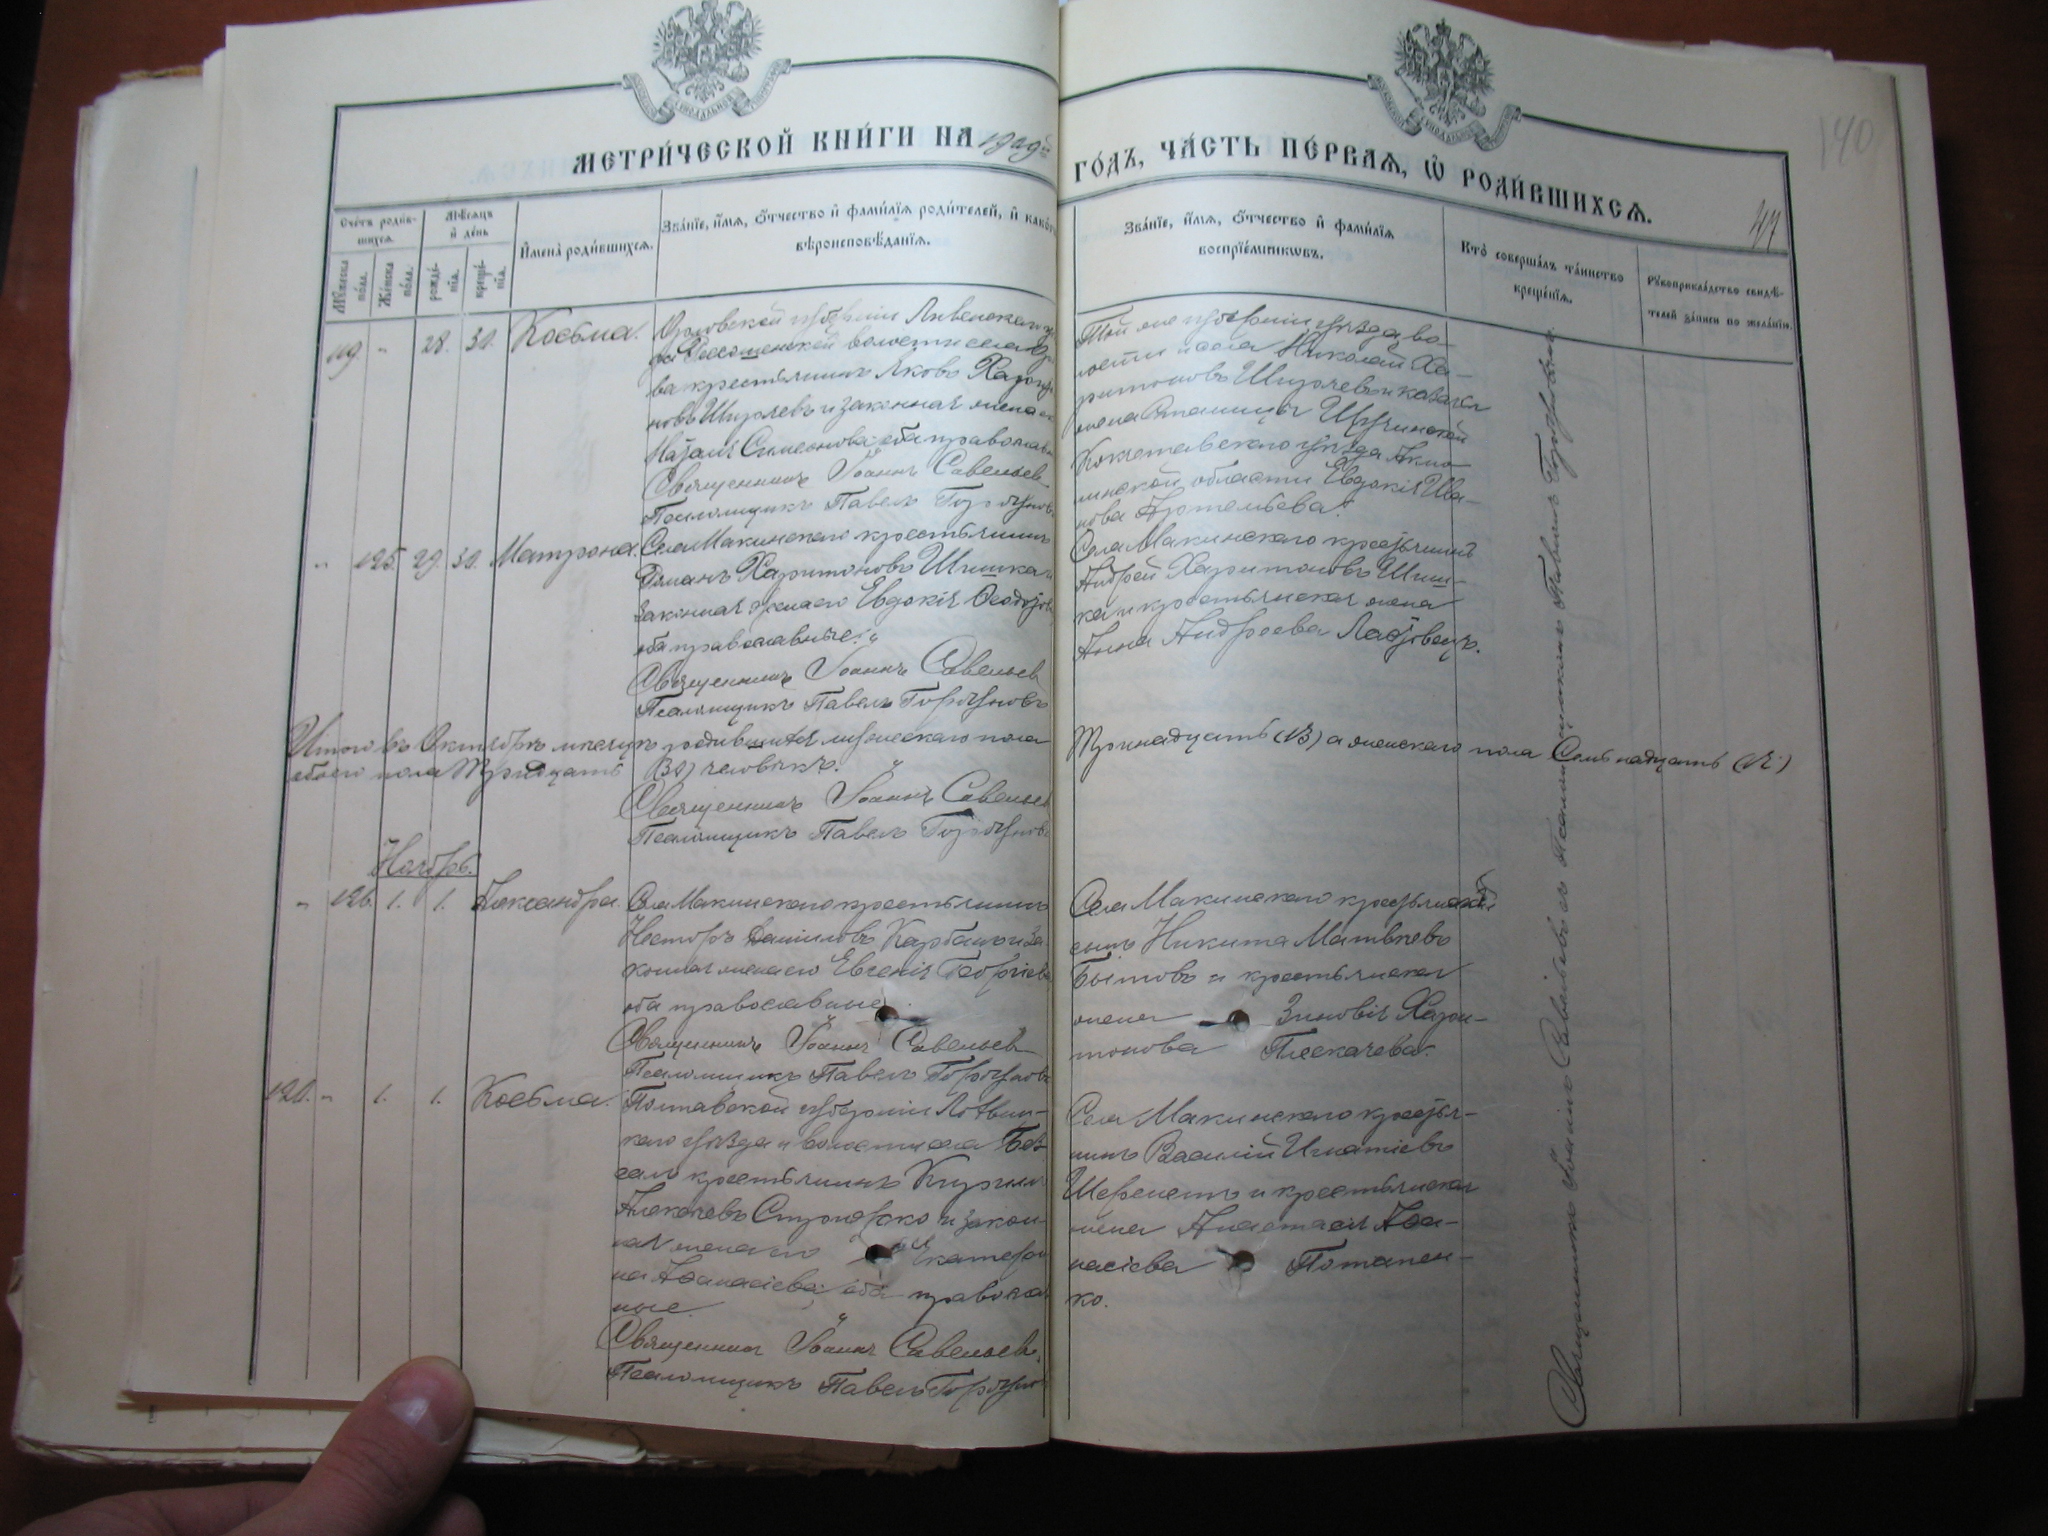 МЕТРИ́ЧЕСКОЙ КНИ́ГИ НА 1909й
ГО́ДЪ, ЧА́СТЬ ПЕ́РВАЯ, Ѡ РОДИ́ВШИХСЯ.
140
Сче́тъ роди́в-
шихся.
Мѣ́сяцъ
и де́нь
Му́жеска
по́ла.
Же́нска
по́ла.
рожде́-
нія.
креще́-
нія.
Имена̀ роди́вшихся.
Зва́ніе, и́мя, о́тчество и фами́лія роди́телей, и како́го
вѣроисповѣ́данія.
Зва́ніе, и́мя, о́тчество и фами́лія
воспріе́мниковъ.
Кто̀ соверша́лъ та́инство
креще́нія.
Рукоприкла́дство свидѣ́-
телей за́писи по жела́нію.
119. „ 28. 30. Косьма.
Орловской губерніи Ливенскаго
волости села
крестьянинъ Яковъ Харито-
новъ и законная жена его
Симеонова оба православн
Священникъ Іоаннъ Савельев
Псаломщикъ Павелъ Горбуновъ
Той же губерніи уѣзда, во-
лости и села Николай Ха-
ритоновъ и казачья
жена станицы Щучинской
Кокчетавскаго уѣзда Акмо-
линской области Евдокія Ива-
нова Артемьева.
„ 125. 29. 30. Матрона.
Села Макинскаго крестьянинъ
Романъ Харитоновъ Шишка и
законная жена его Евдокія Ѳеодор
оба православные.
Священникъ Іоаннъ Савельев
Псаломщикъ Павелъ Горбуновъ
Села Макинскаго крестьянинъ
Андрей Харитоновъ Шиш-
ка и крестьянская жена
Анна Андреева
Итого въ Октябрѣ мѣсяцѣ родившихся мужескаго пола
Тринадцать (13) а женскаго пола Семнадцать (17)
обоего пола Тридцать (30) человѣкъ.
Священникъ Іоаннъ Савельев
Псаломщикъ Павелъ Горбуновъ
Ноябрь.
„ 126. 1. 1. Александра.
Села Макинскаго крестьянинъ
Несторъ Даниловъ Карбанъ и за-
конная жена его Евгенія Георгіева
оба православные.
Священникъ Іоаннъ Савельев
Псаломщикъ Павелъ Горбуновъ
Села Макинскаго крестьянскій
сынъ Никита Матвѣевъ
Бытовъ и крестьянская
жена Зиновія Хари-
тонова Плескачева.
120. „ 1. 1. Косьма.
Полтавской губерніи
каго уѣзда и волости села
крестьянинъ Кирилъ
и закон-
ная жена его Екатери
на Аѳанасіева, оба православ
ные.
Священникъ Іоаннъ Савельев.
Псаломщикъ Павелъ Горбунов
Села Макинскаго крестья-
нинъ Василій Игнатіевъ
Шереметъ и крестьянская
жена Анастасія Аѳа-
насіева Потапен-
ко.
Священникъ Іоаннъ Савельевъ Псаломщикъ Павелъ Горбуновъ.